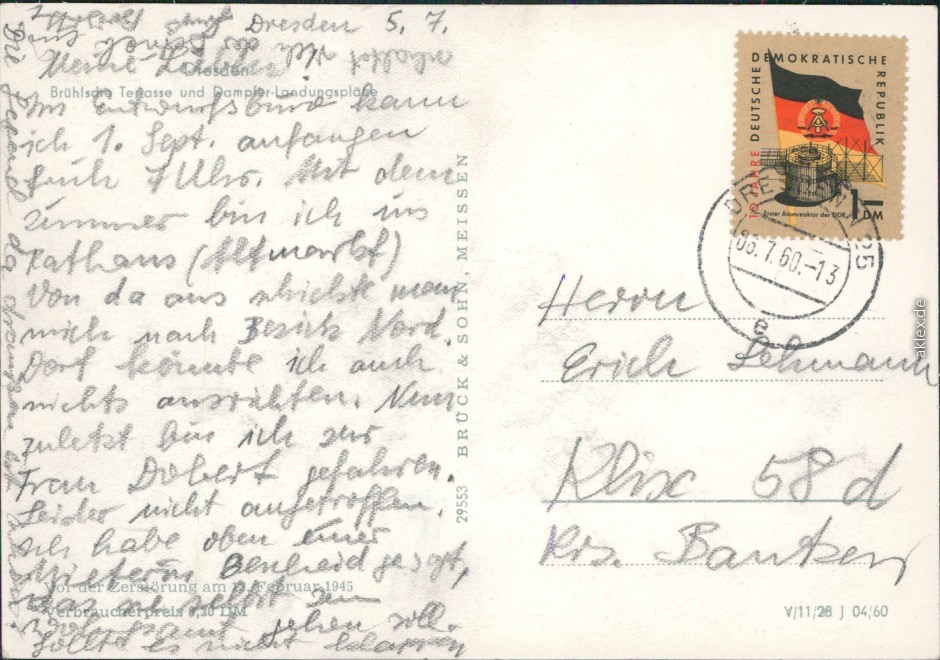 Dresden 5. 7.
Meine Lieben!
Dresden
Brühlsche Terrasse und Dampfer-Landungsplätze
Im Entwurfsbüro kann
ich 1. Sept. anfangen
früh 7 Uhr. Mit dem
Zimmer bin ich ins
Rathaus (Altmarkt)
Von da aus schickte man
mich nach Bezirk Nord.
Dort konnte ich auch
nichts ausrichten. Nun
zuletzt bin ich zur
Frau Dobert gefahren.
Leider nicht angetroffen.
Ich habe oben einer
Mieterin Bescheid gesagt,
Vor der Zerstörung am 13. Februar 1945
das sie selbst zum
Verbraucherpreis 0,20 DM
Wohnungsamt gehen soll.
Sollte es nicht klappen
29553 BRÜCK & SOHN, MEISSEN
10 JAHRE DEUTSCHE DEMOKRATISCHE REPUBLIK
Erster Atomreaktor der DDR
1 DM
DRESDEN A 25
06.7.60.-13
e
Herrn
Erich Lehmann
Klix 58 d
Krs. Bautzen
V/11/28 J 04/60
aklex.de